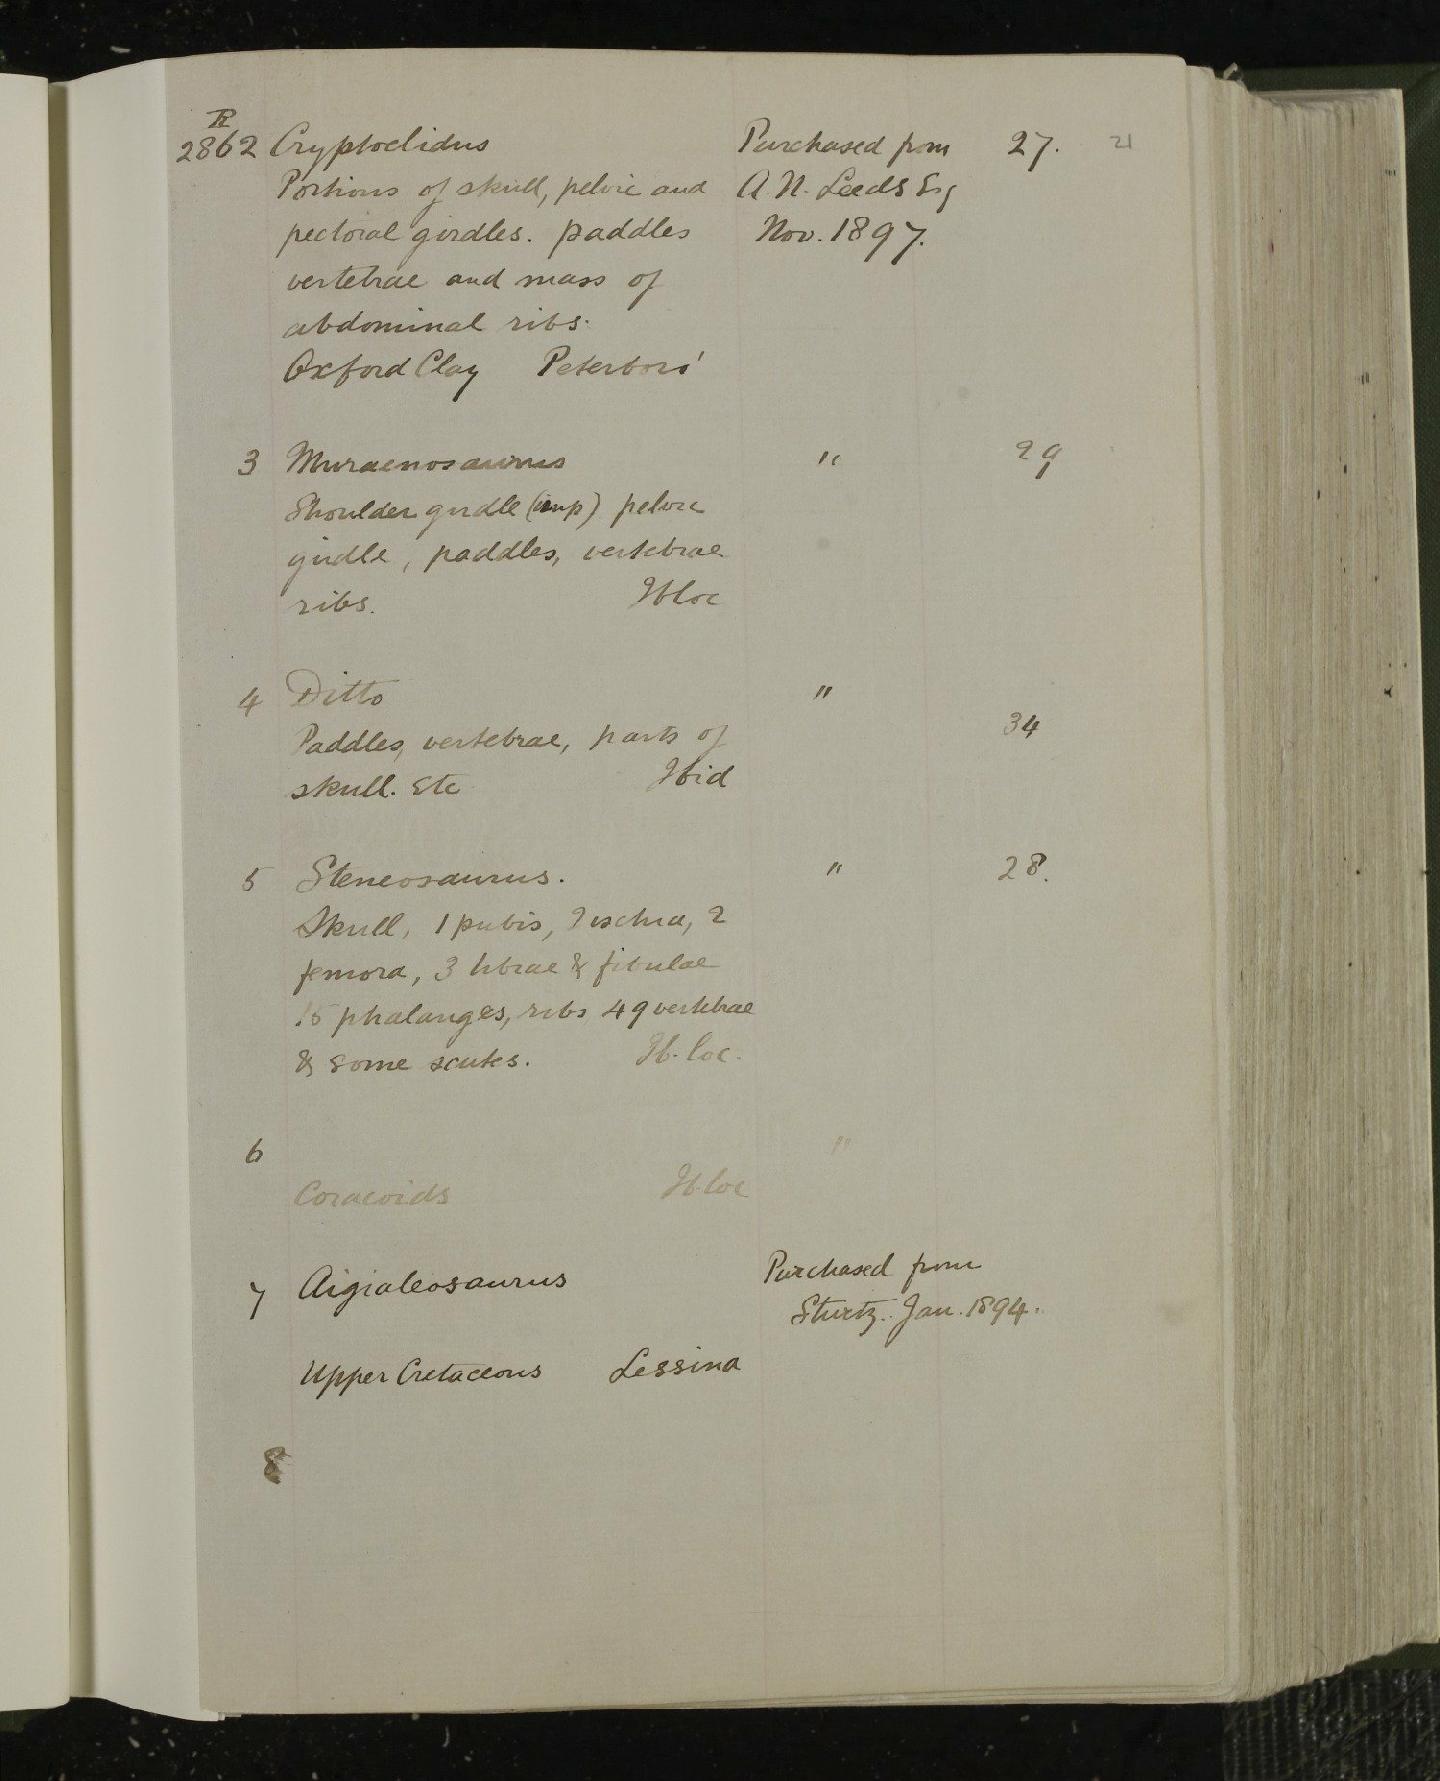 R
2862 Cryptoclidus Purchased from 27. 21
Portions of skull, pelvic and A. N. Leeds Esq
pectoral girdles. paddles Nov. 1897.
vertebrae and mass of
abdominal ribs.
Oxford Clay Peterboro'
3 Muraenosaurus " 29
Shoulder girdle (imp) pelvic
girdle, paddles, vertebrae
ribs. Ib loc
4 Ditto "
Paddles, vertebrae, parts of 34
skull. Etc Ibid
5 Steneosaurus. " 28.
Skull, 1 pubis, 2 ischia, 2
femora, 3 tibiae & fibulae
15 phalanges, ribs 49 vertebrae
& some scutes. Ib. loc.
6 "
Coracoids Ib loc
7 Aigialosaurus Purchased from
Sturtz. Jan. 1894.
Upper Cretaceous Lessina
8